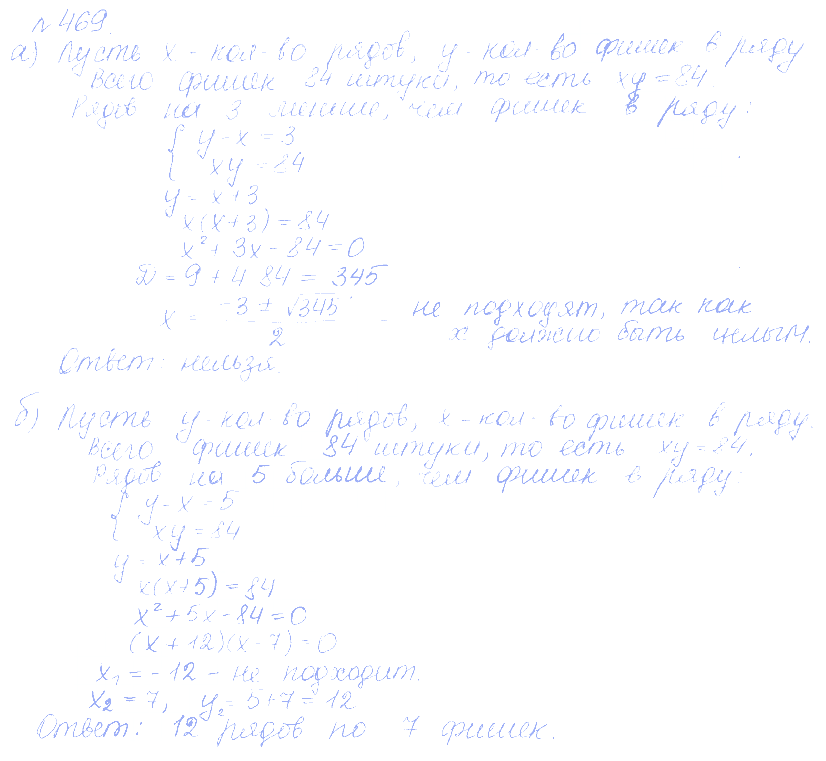 № 469.
а) Пусть x - кол-во рядов, y - кол-во фишек в ряду
Всего фишек 84 штуки, то есть xy = 84
Рядов на 3 меньше, чем фишек в ряду:
{ y - x = 3
xy = 84
y = x + 3
x(x+3) = 84
x² + 3x - 84 = 0
D = 9 + 4·84 = 345
x = (-3 ± √345)/2 - не подходят, так как
x должно быть целым.
Ответ: нельзя.
б) Пусть y - кол-во рядов, x - кол-во фишек в ряду.
Всего фишек 84 штуки, то есть xy = 84.
Рядов на 5 больше, чем фишек в ряду:
{ y - x = 5
xy = 84
y = x + 5
x(x+5) = 84
x² + 5x - 84 = 0
(x + 12)(x - 7) = 0
x₁ = -12 - не подходит.
x₂ = 7, y₂ = 5+7 = 12
Ответ: 12 рядов по 7 фишек.